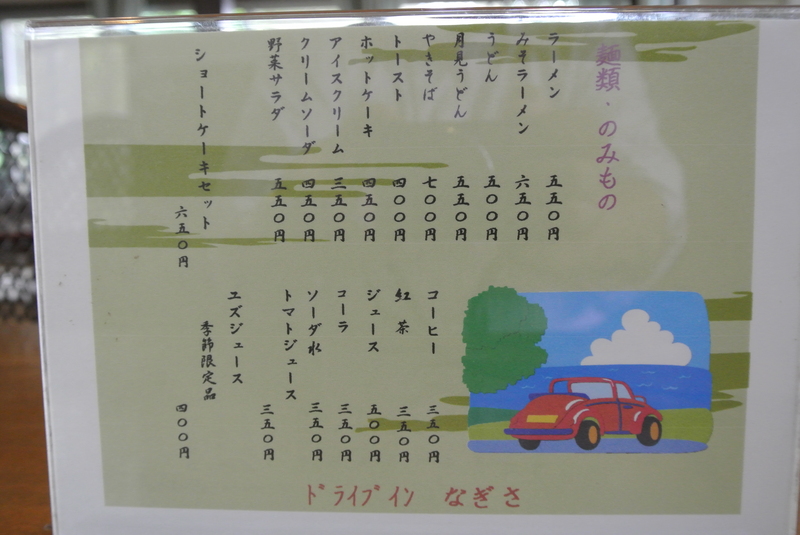 麺類、のみもの
ラーメン 五五〇円
みそラーメン 六五〇円
うどん 五〇〇円
月見うどん 五五〇円
やきそば 七〇〇円
トースト 四〇〇円
ホットケーキ 四五〇円
アイスクリーム 三五〇円
クリームソーダ 四五〇円
野菜サラダ 五五〇円
ショートケーキセット
六五〇円
コーヒー 三五〇円
紅茶 三五〇円
ジュース 五〇〇円
コーラ 三五〇円
ソーダ水 三五〇円
トマトジュース
三五〇円
ユズジュース
季節限定品
四〇〇円
ドライブイン なぎさ